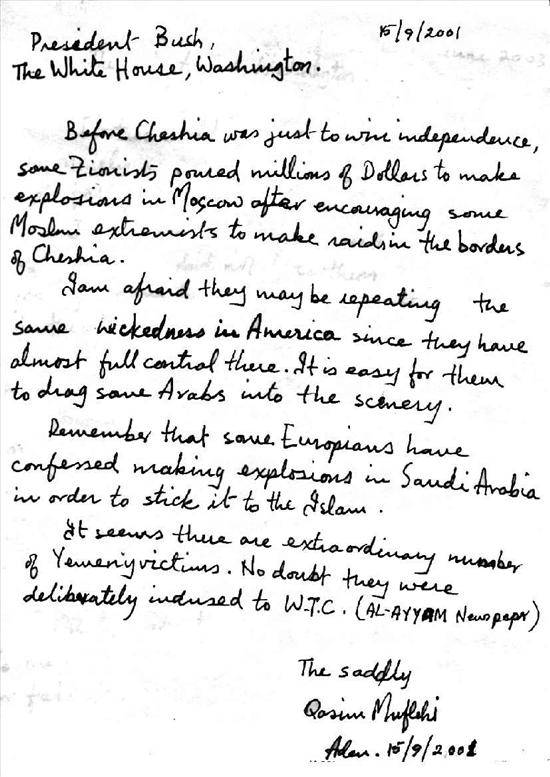 15/9/2001
President Bush,
The White House, Washington.
Before Cheshia was just to win independence,
some Zionists poured millions of Dollars to make
explosions in Moscow after encouraging some
Moslem extremists to make raids in the borders
of Cheshia.
I am afraid they may be repeating the
same wickedness in America since they have
almost full control there. It is easy for them
to drag some Arabs into the scenery.
Remember that some Europians have
confessed making explosions in Saudi Arabia
in order to stick it to the Islam.
It seems there are extraordinary number
of Yemeniy victims. No doubt they were
deliberately indused to W.T.C. (AL-AYYAM Newspapr)
The saddly
Qasim Muflehi
Aden. 15/9/2001